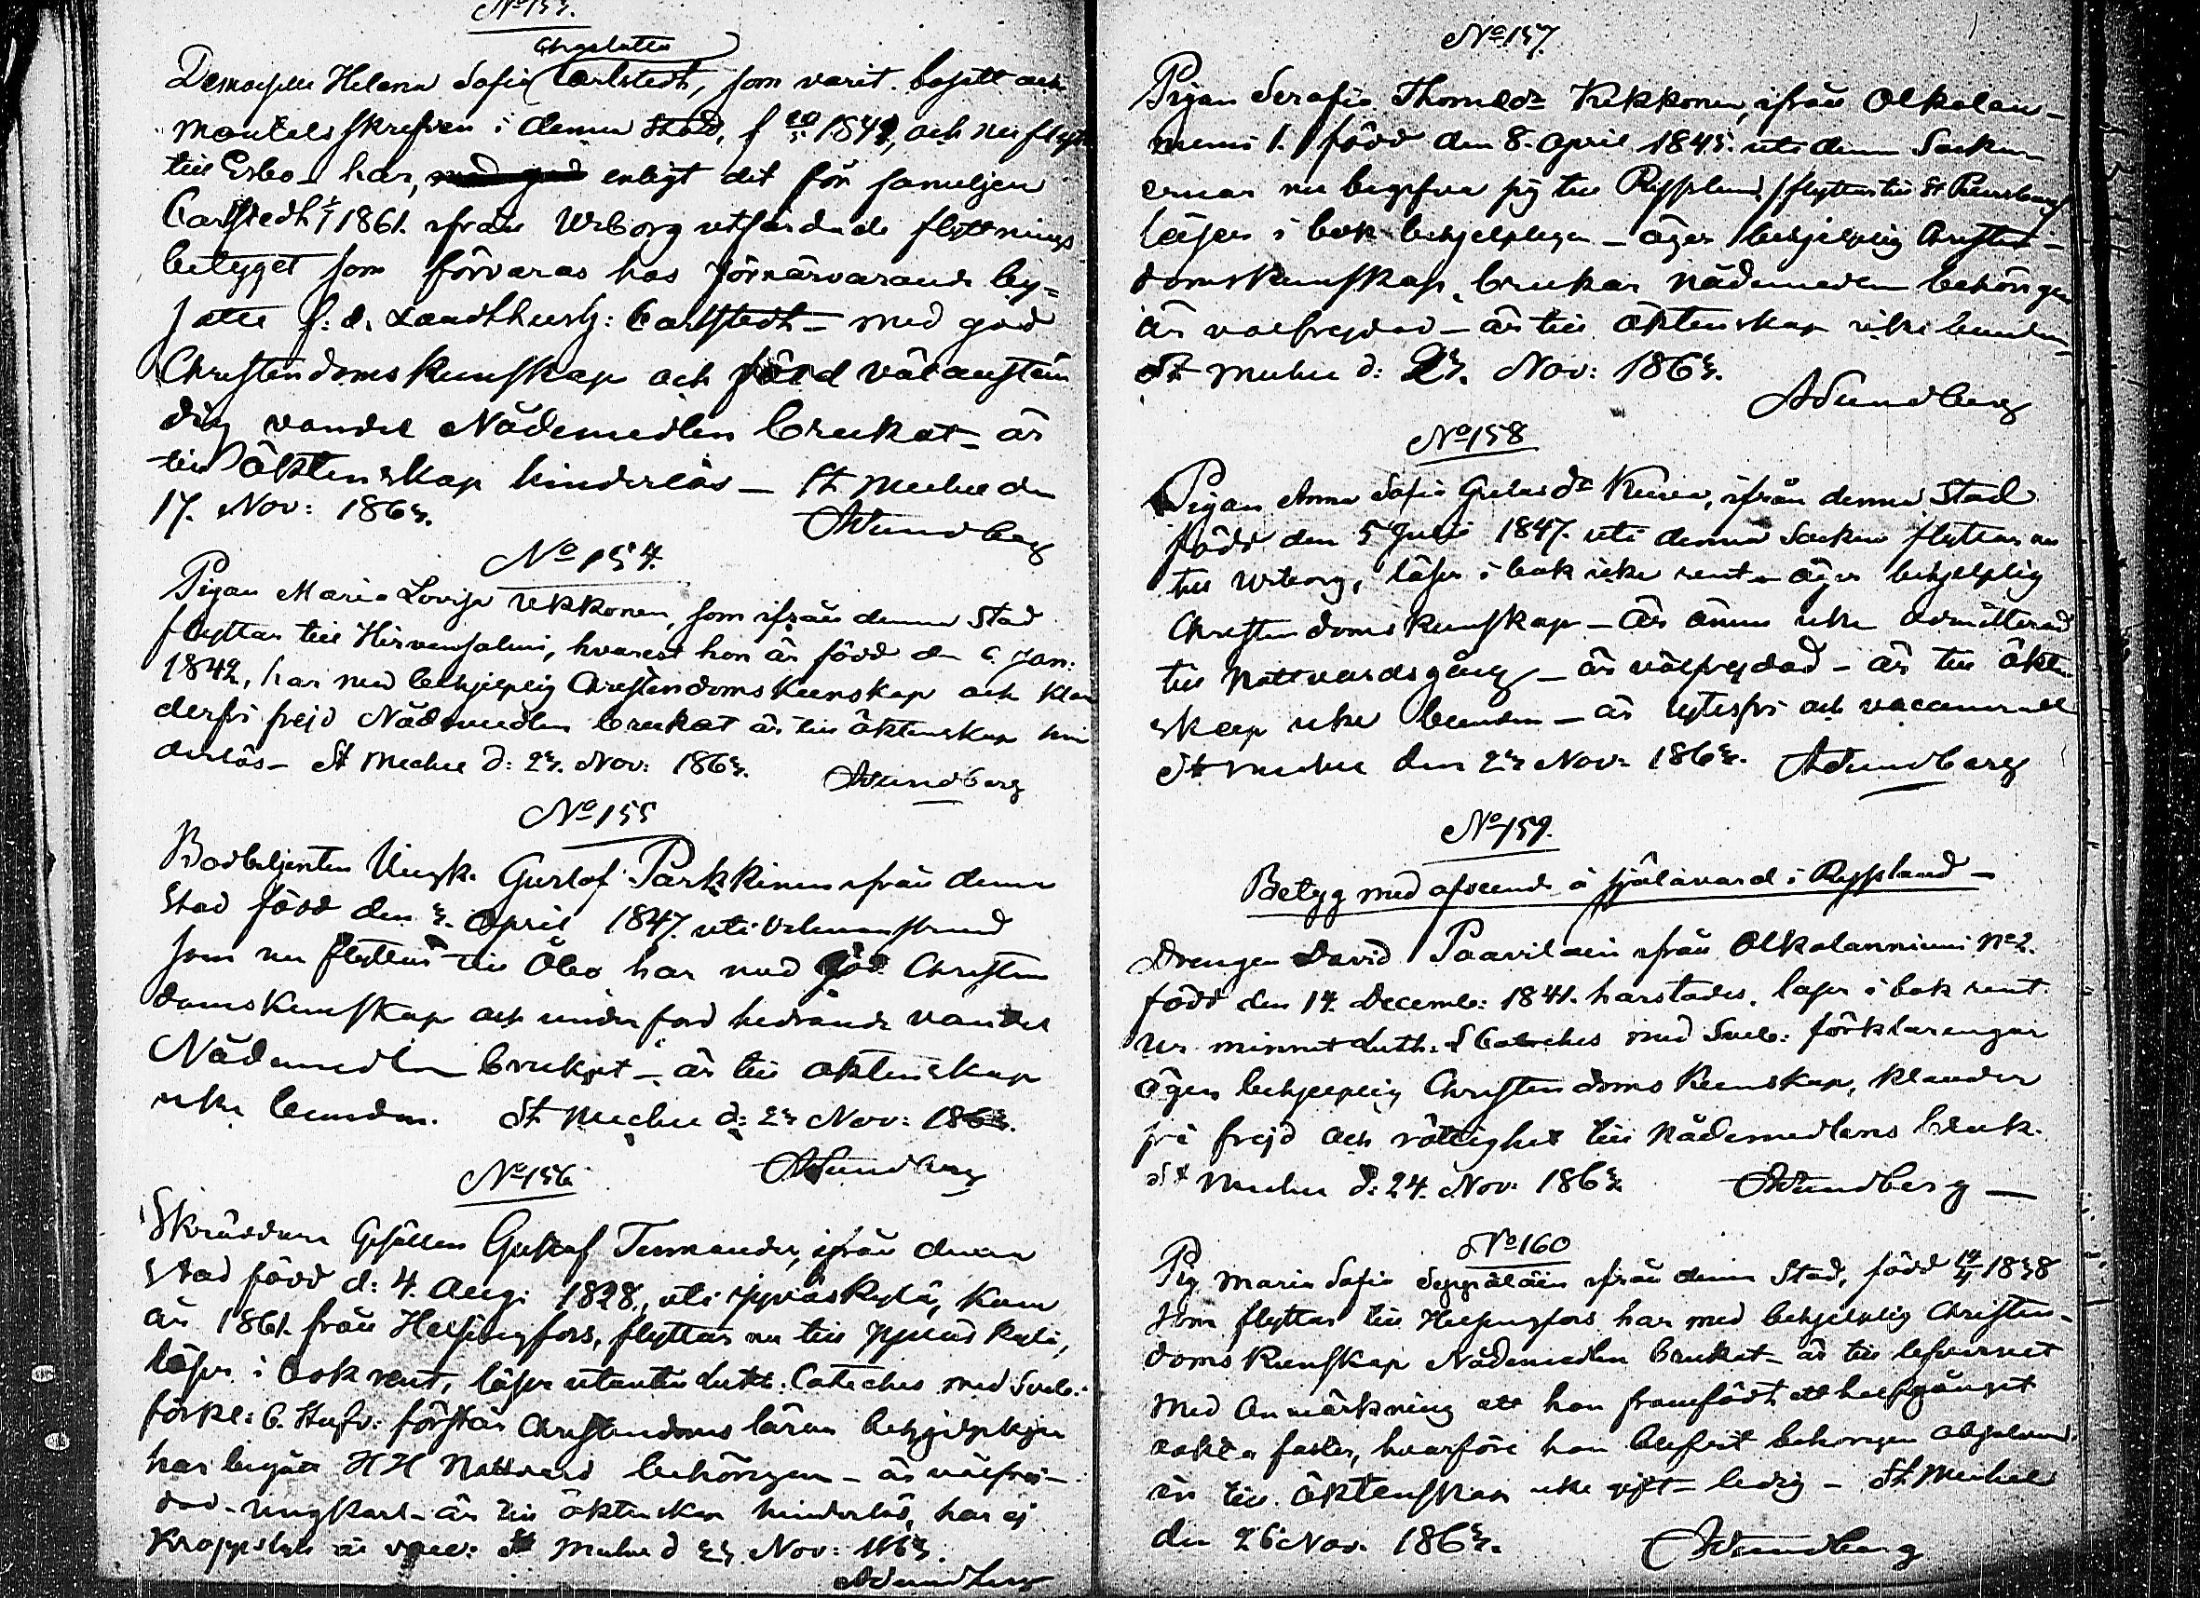 No 153.
Demoiselle Helena Sofia Carlstedt, som varit bosatt och
mantalsskrefven i denna Stad, f 1842, och nu flyttar
till Esbo – har, enligt det för familjen
Carlstedt 1861. ifrån Wiborg utfärdade flyttnings
betyget som förvaras hos förnärvarande
f: d. Carlstedt – med god
Christendomskunskap och förd välanstän
dig vandel Nådemedlen brukat – är
till äktenskap hinderlös – St Michel den
17. Nov: 1863.
ASundberg
No 154.
Pigan Maria Lovisa Ukkonen, som ifrån denna Stad
flyttar till Hirvensalmi, hvarest hon är född den 6. Jan:
1842, har med behjelplig Christendomskunskap och klan
derfri frejd Nådemedlen brukat är till äktenskap hin
derlös – St Michel d: 23. Nov: 1863.
ASundberg
No 155
Bodbetjenten Ungk. Gustaf Parkkinen ifrån denna
Stad född den 3. April 1847. uti Vilmanstrand
som nu flyttar till Åbo har med god Christen
domskunskap och under förd hedrande vandel
Nådemedlen brukat – är till äktenskap
icke bunden. St Michel d: 23 Nov: 1863.
ASundberg
No 156
Skräddare Gesällen Gustaf ifrån denna
Stad född d: 4. Aug: 1828., uti Jyväskylä, kom
år 1861. från Helsingfors, flyttar nu till Jyväskylä,
läser i bok rent, läser utantill Luth: Cateches med Sveb.
förkl: förstår Christendoms läran behjelpligen
har begått HH Nattvard behörigen – är välfrej–
dad – ungkarl – är till äktenskap hinderlös, har ej
kroppslyte är vacc: St Michel d 23 Nov: 1863.
ASundberg
No 157.
Pigan Serafia Thomasdr Kekkonen, ifrån Olkolan–
niemi 1. född den 8. April 1845. uti denna Socken
ernar nu begifva sig till Ryssland / flyttar till St Petersburg
läser i bok behjelpligen – äger behjelplig Christen–
domskunskap, brukar nådemedlen behörigen
är välfrejdad – är till äktenskap icke bunden
St Michel d: 23. Nov: 1863.
ASundberg
No 158
Pigan Anna Sofia dr ifrån denna Stad
född den 5 Julii 1847. uti denna Socken flyttar nu
till Wiborg, läser i bok icke rent – äger behjelplig
Christendomskunskap – är ännu icke admitterad
till Nattvardsgång – är välfrejdad – är till äkten
skap icke bunden – är lytesfri och vaccinerad
St Michel den 23 Nov. 1863. ASundberg
No 159.
Betyg med afseende å själavård i Ryssland –
Drengen David Paavilain ifrån Olkolanniemi No 2.
född den 14. Decemb: 1841. härstädes, läser i bok rent
ur minnet Luth: Cateches med Sveb: förklaringar
äger behjelplig Christendoms kunskap, klander
fri frejd och rättighet till Nådemedlens bruk.
St Michel d: 24. Nov. 1863. ASundberg –
No 160
Pig Maria Sofia Seppäläin ifrån denna Stad, född 1838
som flyttar till Helsingfors har med behjelplig Christen–
doms kunskap Nådemedlen brukat – är till lefvernet
med anmärkning att hon framfödt ett
äkta foster, hvarföre hon blifvit behörigen absolverad,
är till äktenskap icke gift – ledig – St Michel
den 26 Nov. 1863. ASundberg